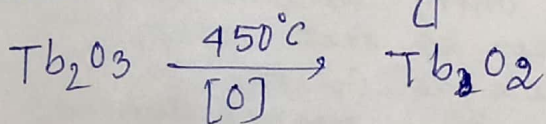 Tb₂O₃ —450°C/[O]→ Tb₂O₂